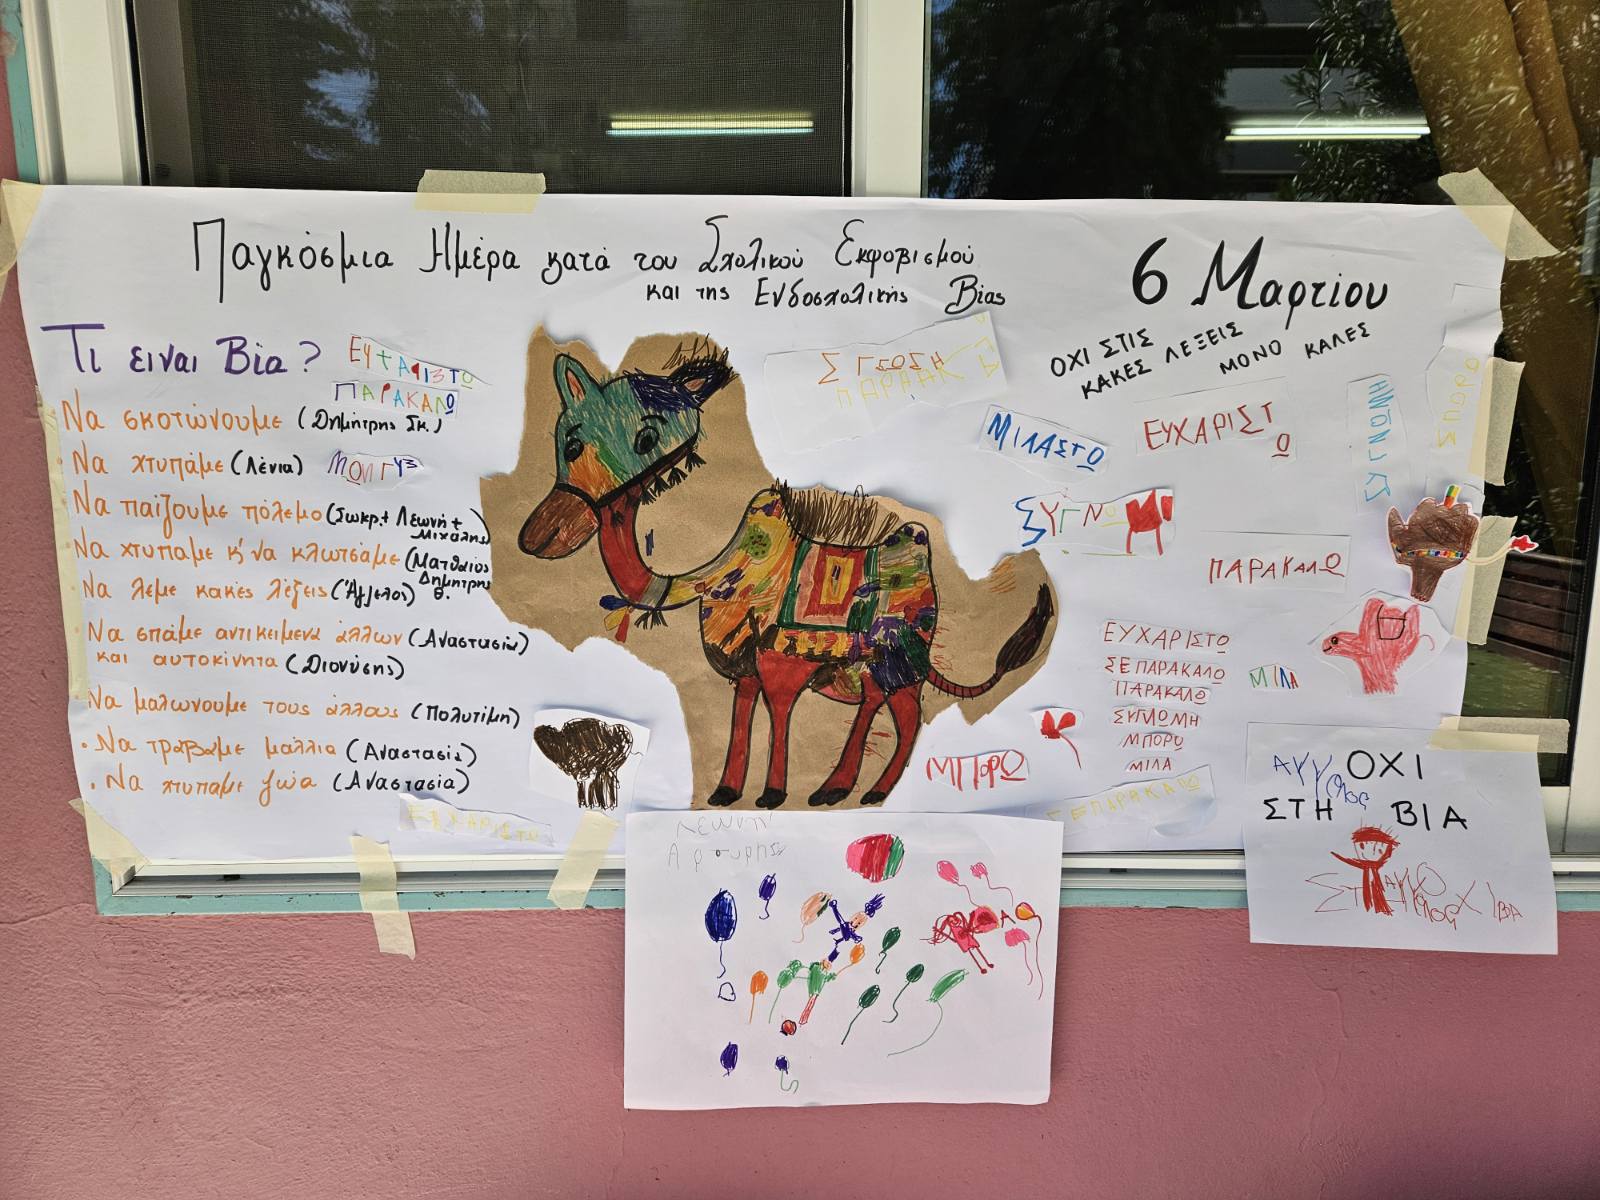 Παγκόσμια Ημέρα κατά του Σχολικού Εκφοβισμού
και της Ενδοσχολικής Βίας
6 Μαρτίου
Τι ειναι Βία?
Να σκοτώνουμε (Δημήτρης Σκ.)
Να χτυπάμε (Λένια)
Να παίζουμε πόλεμο (Σωκρ.+ Λεωνή +
Μιχάλης)
Να χτυπαμε κ' να κλωτσάμε (Ματθαίος
Δημητρης
Θ.
Να λέμε κακές λέξεις (Άγγελος)
Να σπάμε αντικειμενα άλλων (Αναστασία)
και αυτοκίνητα (Διονύσης)
Να μαλώνουμε τους άλλους (Πολυτίμη)
Να τραβαμε μαλλια (Αναστασία)
Να χτυπαμε ζωα (Αναστασία)
ΠΑΡΑΚΑΛΩ
ΟΧΙ ΣΤΙΣ
ΚΑΚΕΣ ΛΕΞΕΙΣ
ΜΟΝΟ ΚΑΛΕΣ
ΜΙΛΑΣΤΩ
ΕΥΧΑΡΙΣΤ
Ω
ΣΥΓΝΟ
ΠΑΡΑΚΑΛΩ
ΕΥΧΑΡΙΣΤΩ
ΣΕ ΠΑΡΑΚΑΛΩ
ΠΑΡΑΚΑΛΩ
ΣΥΓΛΩΜΗ
ΜΠΟΡΩ
ΜΙΛΑ
ΜΙΛΑ
ΜΠΟΡΩ
ΣΕΠΑΡΑΚΑΛΩ
ΕΥΧΑΡΙΣΤΩ
ΟΧΙ
ΣΤΗ ΒΙΑ